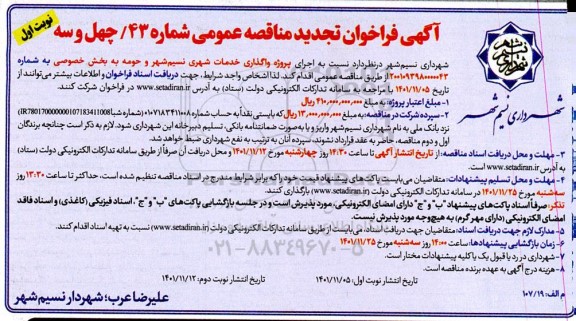 آگهی فراخوان تجدید مناقصه عمومی شماره ۴۳/ چهل و سه
نوبت اول
شهرداری نسیم‌شهر
شهرداری نسیم‌شهر درنظردارد نسبت به اجرای پروژه واگذاری خدمات شهری نسیم‌شهر و حومه به بخش خصوصی به شماره
۲۰۰۱۰۹۳۹۸۰۰۰۰۴۳ از طریق مناقصه عمومی اقدام کند. لذا اشخاص واجد شرایط، جهت دریافت اسناد فراخوان و اطلاعات بیشتر می‌توانند از
تاریخ ۱۴۰۱/۱۱/۰۵ با مراجعه به سامانه تدارکات الکترونیکی دولت (ستاد) به آدرس www.setadiran.ir در فراخوان شرکت کنند.
۱- مبلغ اعتبار پروژه: به مبلغ ۴۱۰,۰۰۰,۰۰۰,۰۰۰ ریال
۲- سپرده شرکت در مناقصه: به مبلغ ۱۳,۰۰۰,۰۰۰,۰۰۰ ریال که بایستی نقداً به حساب شماره ۰۱۰۷۱۸۳۴۱۱۰۰۸ (شبا IR780170000000107183411008)
نزد بانک ملی به نام شهرداری نسیم‌شهر واریز و یا به‌صورت ضمانتنامه بانکی، تسلیم دبیرخانه این شهرداری شود. لازم به ذکر است چنانچه برندگان
اول و دوم مناقصه، حاضر به عقد قرارداد نشوند، سپرده آنان به ترتیب به نفع شهرداری ضبط خواهد شد.
۳- مهلت و محل دریافت اسناد مناقصه: از تاریخ انتشار آگهی تا ساعت ۱۴:۳۰ روز چهارشنبه مورخ ۱۴۰۱/۱۱/۱۲ و محل دریافت آن صرفاً از طریق سامانه تدارکات الکترونیکی دولت (ستاد)
به آدرس www.setadiran.ir است.
۴- مهلت و محل تسلیم پیشنهادات: متقاضیان می‌بایست پاکت‌های پیشنهاد قیمت خود را که برابر شرایط مندرج در اسناد مناقصه تنظیم شده است، حداکثر تا ساعت ۱۳:۳۰ روز
سه‌شنبه مورخ ۱۴۰۱/۱۱/۲۵ در سامانه تدارکات الکترونیکی دولت (www.setadiran.ir) بارگذاری کنند.
تذکر: صرفاً اسناد پاکت‌های پیشنهاد "ب" و "ج" دارای امضای الکترونیکی، مورد پذیرش است و در جلسه بازگشایی پاکت‌های "ب" و "ج"، اسناد فیزیکی (کاغذی) و اسناد فاقد
امضای الکترونیکی (دارای مهر گرم)، به هیچ‌وجه مورد پذیرش نیست.
۵- مدارک لازم جهت دریافت اسناد: متقاضیان جهت دریافت اسناد می‌بایست از طریق سامانه تدارکات الکترونیکی دولت (www.setadiran.ir) نسبت به تهیه اسناد اقدام کنند.
۶- زمان بازگشایی پیشنهادها: ساعت ۱۴:۰۰ روز سه‌شنبه مورخ ۱۴۰۱/۱۱/۲۵
۷- شهرداری در رد یا قبول یک یا کلیه پیشنهادات مختار است.
۸- هزینه درج آگهی به عهده برنده مناقصه است.
تاریخ انتشار نوبت اول: ۱۴۰۱/۱۱/۰۵
تاریخ انتشار نوبت دوم: ۱۴۰۱/۱۱/۱۲
م الف: ۱۰۷/۱۹
علیرضا عرب؛ شهردار نسیم‌شهر
۰۲۱-۸۸۳۴۹۶۷۰-۵